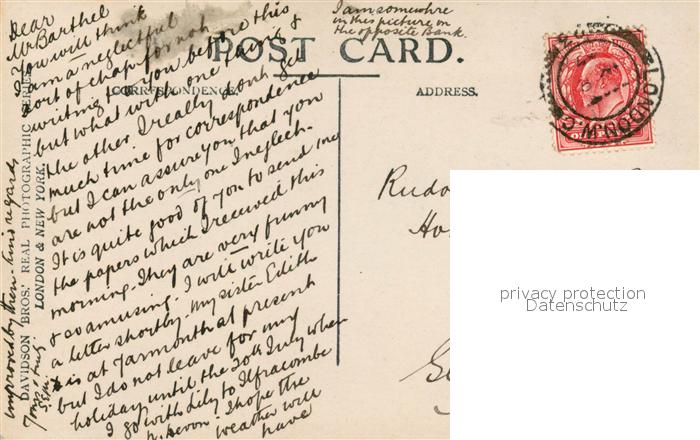 I am somewhre
in this picture on
the opposite Bank.
POST CARD.
CORRESPONDENCE.
ADDRESS.
LONDON. W.C.
Dear
Mr Barthel
You will think
I am a neglectful
sort of chap for not
writing to you before this
but what with one thing &
the other I really don't get
much time for correspondence
but I can assure you that you
are not the only one I neglect.
It is quite good of you to send me
the papers which I received this
morning. They are very funny
& so amusing. I will write you
a letter shortly. My sister Edith
is at Yarmouth at present
but I do not leave for my
holiday until the 20th July when
I go with Lily to Ilfracombe
N. Devon. I hope the
weather will
have
improved by then. Kind regards
DAVIDSON BROS.' REAL PHOTOGRAPHIC SERIES.
LONDON & NEW YORK.
Rudo
Ho
privacy protection
Datenschutz